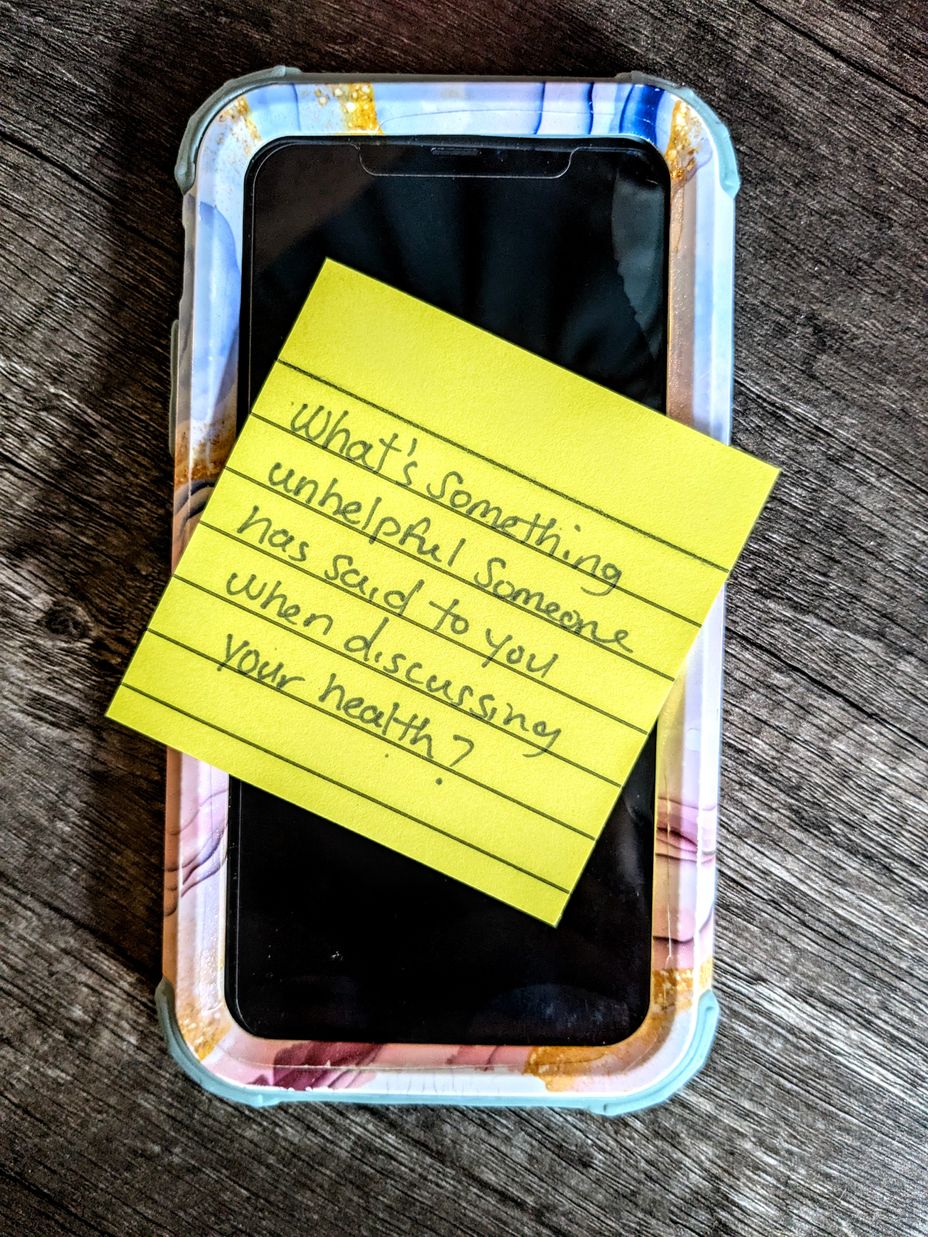 What's something
unhelpful someone
has said to you
when discussing
your health?